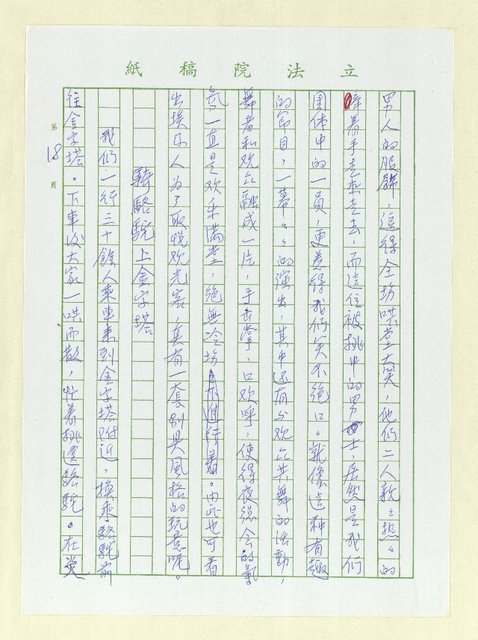 立法院稿紙
男人的服飾，逗得全場哄堂大笑，他們二人親々熱々的
牽着手走來走去，而這位被挑中的男士，居然是我們
團体中的一員，更惹得我們笑不絕口。就像這种有趣
的節目，一幕々々的演出，其中还有与观众共舞的活動，
舞者和观众融成一片，手击掌，口欢呼，使得夜總会的氣
氛一直是欢乐滿堂，絕無冷場進行着。由此也可看
出埃及人为了取悅观光客，真有一套別具風格的玩意呢。
騎駱駝上金字塔
我們一行三十餘人乘車來到金字塔附近，換乘駱駝前
往金字塔。下車後大家一哄而散，忙着挑選駱駝。在黨
第18頁